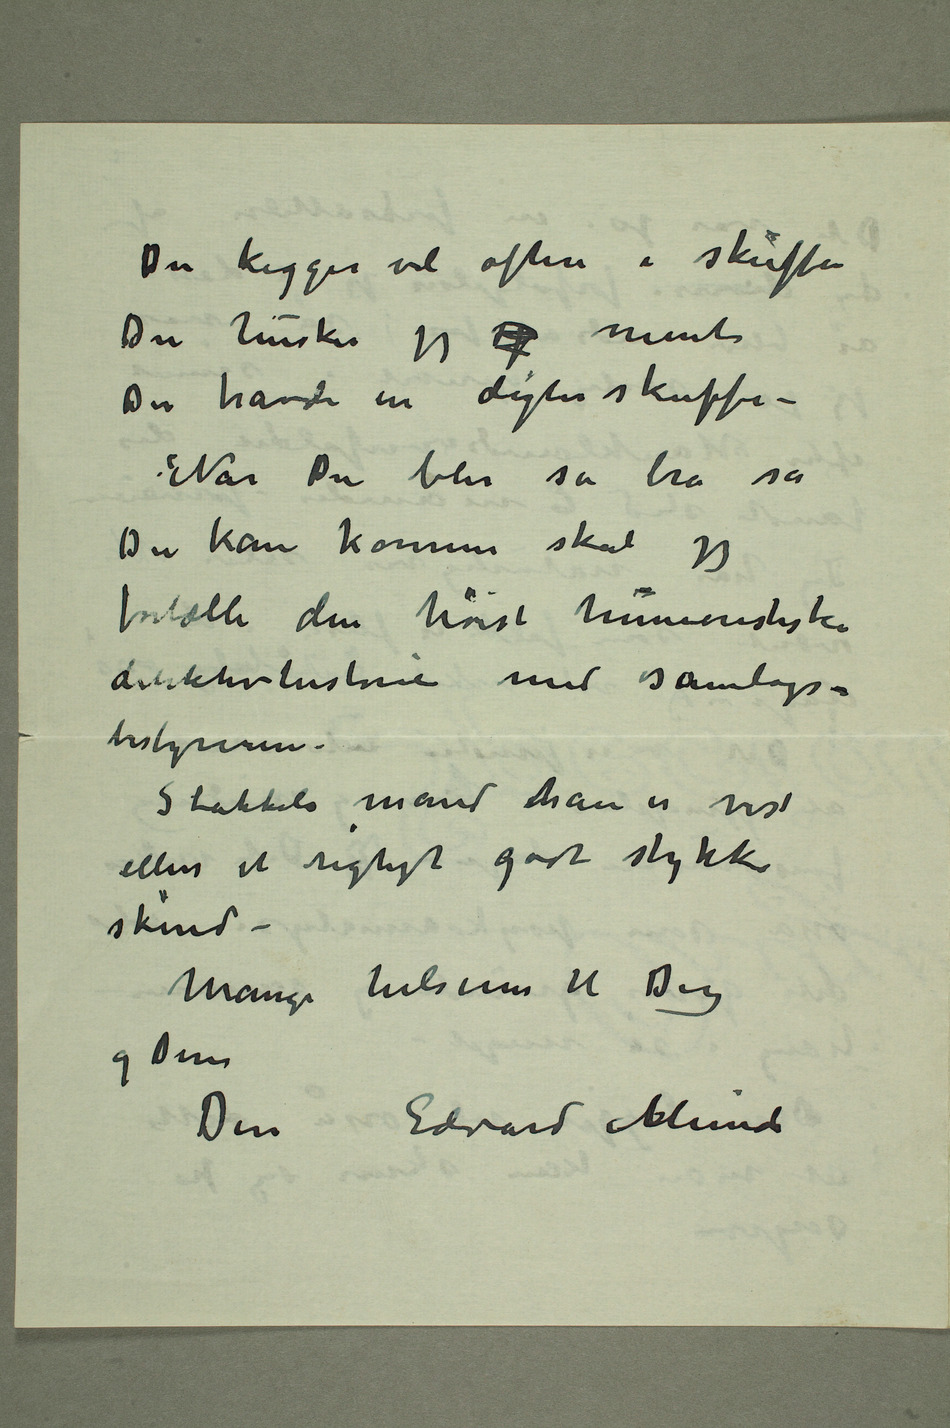 Du kigger vel oftere i skuffen
Du husker jeg mente
Du havde en digterskuffe –
Når Du blir så bra så
Du kan komme skal jeg
fortælle den høist humoristiske
detektivhistorie med samlags-
bestyreren –
Stakkels mand han er vist
ellers et rigtigt godt stykke
skind –
Mange hilsener til Dig
og Dine
Din Edvard Munch